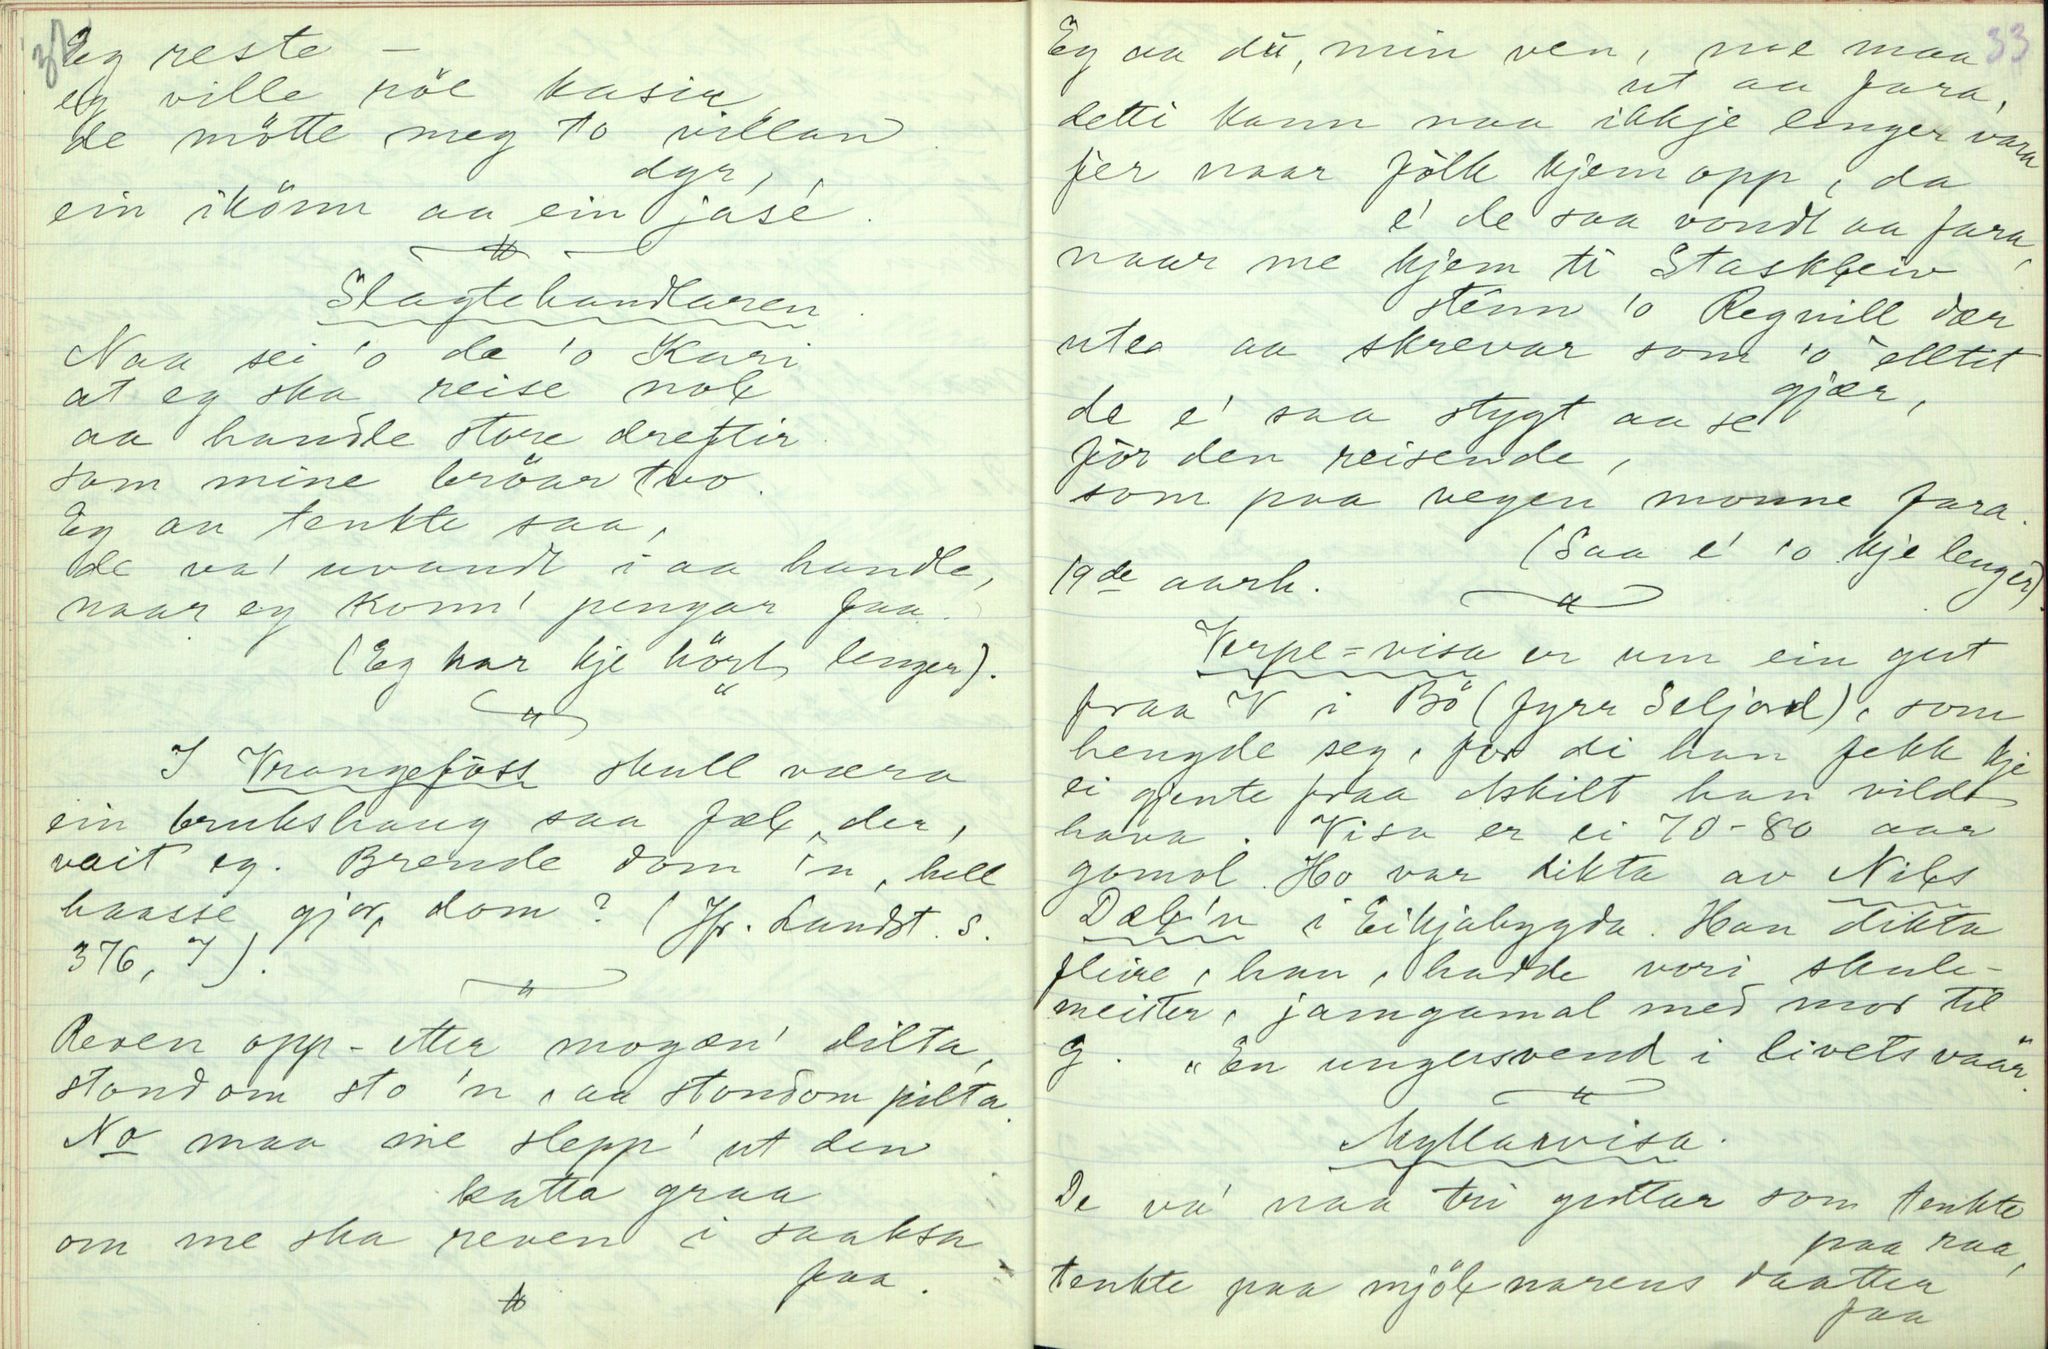 32
Eg reste –
eg ville röle kasia
de mötte meg to villan
dyr,
ein ikönn aa ein jase.
Slagtehandlaren.
Naa sei 'o de 'o Kari
at eg ska reise nol
aa handle store dreftir
som mine bröar tvo.
Eg aa tenkte saa,
de va' uvandt i aa handle,
naar eg konn' pengar faa.
(Eg har kje hört lenger).
I Vrangefoss skull væra
ein brukshaug saa fæl, der,
vait eg. Brende dom 'n, hell
haasse gjor dom? (Jfr. Landst. s.
376, 7).
Reven opp-etter mogæn' dilta,
stondom sto 'n, aa stondom pilta.
No maa me slepp' ut den
katta graa
om me ska reven i saaksa
faa.
33
Eg aa du, min ven, me maa
ut aa fara,
detti kann naa ikkje lenger vara
fer naar fölk kjem opp, da
e' de saa vondt aa fara,
naar me kjem ti Staskleiv
stenn 'o Regnill dær
ute aa skrevar som 'o elltit
gjær,
de e' saa stygt aa se
för den reisende,
som paa vegen monne fara.
(Saa e' 'o kje lenger).
19de aarh.
Verpe-visa er um ein gut
fraa V i Bö (fyrr Seljord), som
hengde seg, for di han fekk kje
ei gjente fraa Askilt han vilde
hava. Visa er ei 70-80 aar
gamol. Ho var dikta av Nils
Dæl'n i Eikjabygda. Han dikta
fleire, han, hadde vori skule-
meister, jamgamal med mor til
G. "En ungersvend i livets vaår.
Myllarvisa.
De va' naa tri guttar som tenkte
paa raa,
tenkte paa mjöl narens daatter
faa